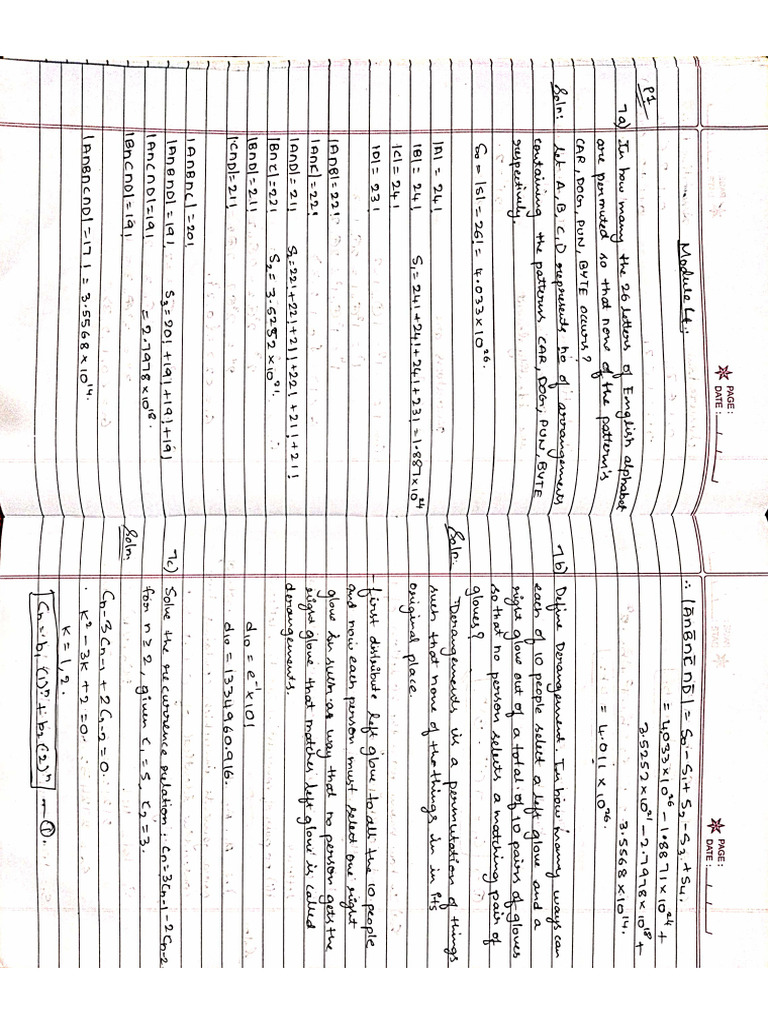 PAGE:
DATE: / / /
Module 4.
P1
7a) In how many the 26 letters of English alphabet
are permuted so that none of the pattern's
CAR, DOG, PUN, BYTE occurs?
Soln: Let A, B, C, D represents no of arrangements
containing the patterns CAR, DOG, PUN, BYTE
respectively.
S0 = |S| = 26! = 4.033 × 10^26.
|A| = 24!
|B| = 24! S1 = 24! + 24! + 24! + 23! = 1.887 × 10^24
|C| = 24!
|D| = 23!
|A∩B| = 22!
|A∩C| = 22!
|A∩D| = 21! S2 = 22! + 22! + 21! + 22! + 21! + 21!
|B∩C| = 22! S2 = 3.5252 × 10^21.
|B∩D| = 21!
|C∩D| = 21!
|A∩B∩C| = 20!
|A∩B∩D| = 19! S3 = 20! + 19! + 19! + 19!
|A∩C∩D| = 19! = 2.7978 × 10^18.
|B∩C∩D| = 19!
|A∩B∩C∩D| = 17! = 3.5568 × 10^14.
PAGE:
DATE: / / /
∴ |A̅∩B̅∩C̅∩D̅| = S0 - S1 + S2 - S3 + S4.
= 4033 × 10^26 - 1.8871 × 10^24 +
3.5252 × 10^21 - 2.7978 × 10^18 +
3.5568 × 10^14.
= 4.011 × 10^26.
7b) Define Derangement. In how many ways can
each of 10 people select a left glove and a
right glove out of a total of 10 pairs of gloves
so that no person selects a matching pair of
gloves?
Soln: Derangements is a permutation of things
such that none of the things in in its
original place.
- first distribute left glove to all the 10 people
and now each person must select one right
glove in such as way that no person gets the
right glove that matches left glove is called
derangements.
d10 = e^-1 × 10!
d10 = 1334960.916.
7c) Solve the recurrence relation: Cn = 3Cn-1 - 2Cn-2
for n ≥ 2, given C1 = 5, C2 = 3.
Soln: Cn - 3Cn-1 + 2Cn-2 = 0.
k² - 3k + 2 = 0.
k = 1, 2.
Cn = b1 (1)^n + b2 (2)^n — ①.